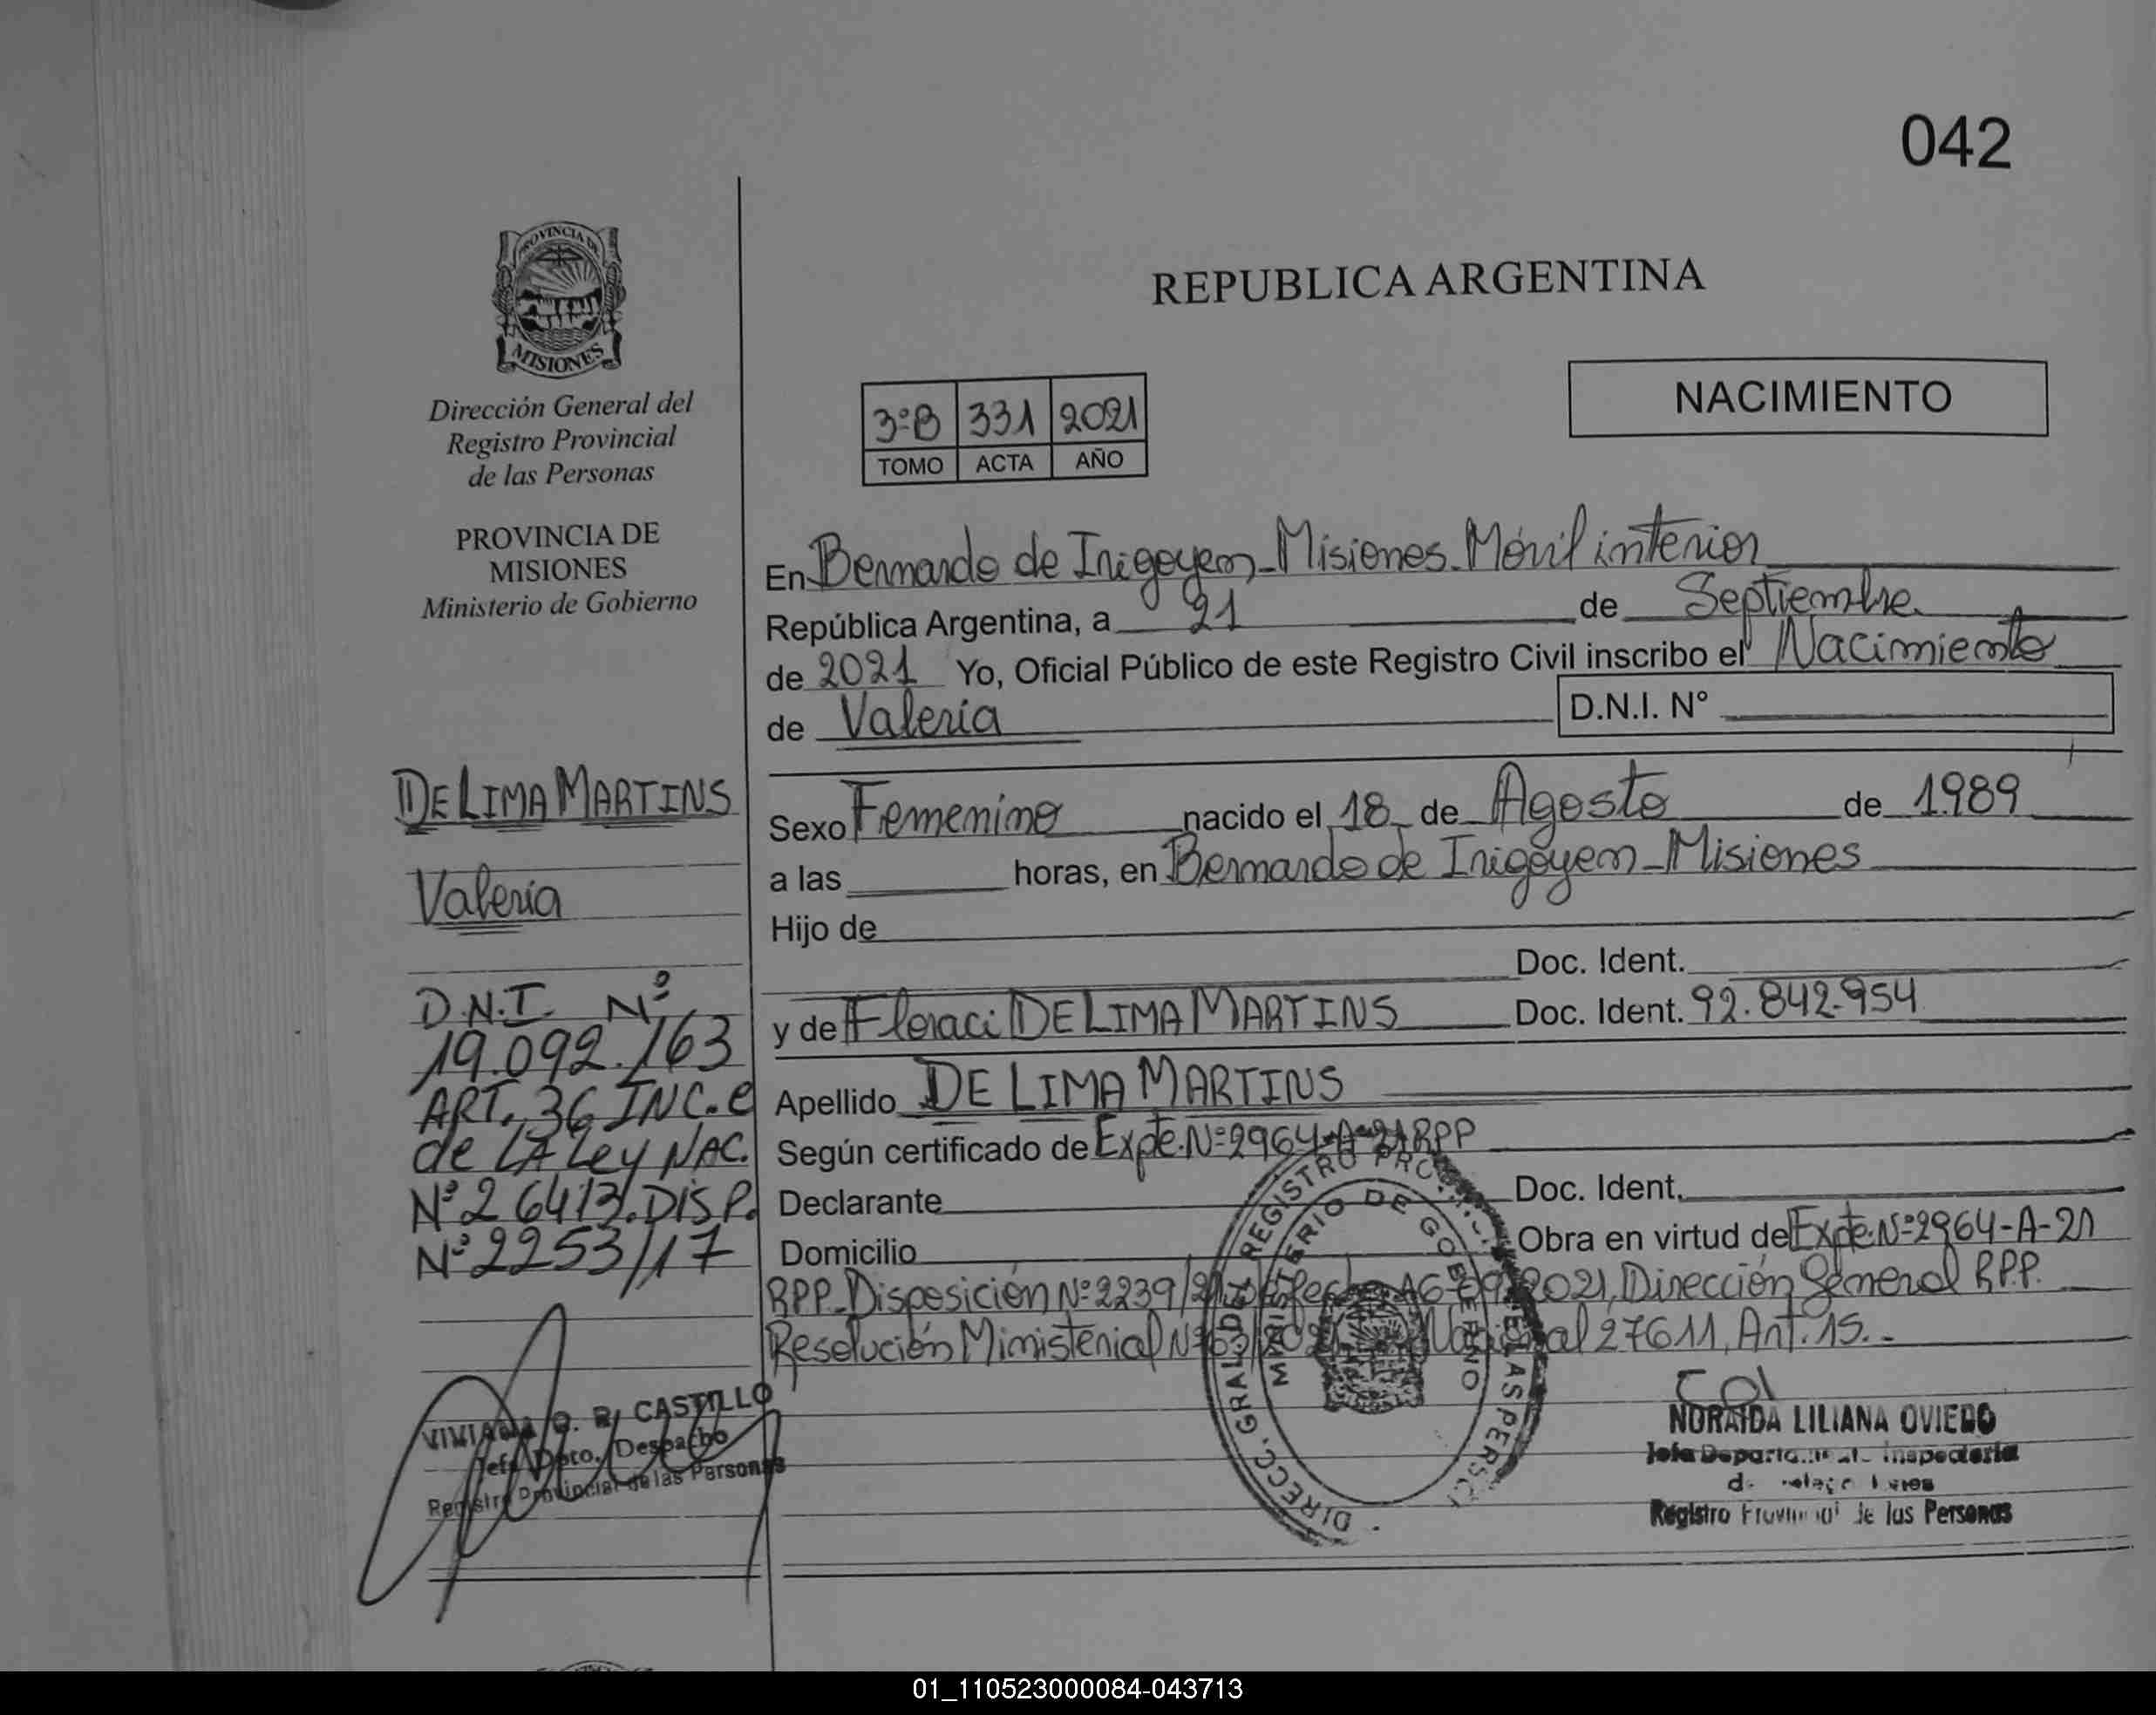 042
PROVINCIA DE
MISIONES
REPUBLICA ARGENTINA
NACIMIENTO
3ºB 331 2021
TOMO ACTA AÑO
Dirección General del
Registro Provincial
de las Personas
PROVINCIA DE
MISIONES
Ministerio de Gobierno
DE LIMA MARTINS
Valeria
D.N.I. Nº
19.092.163
ART. 36 INC. e
de LA Ley NAC.
Nº 26413. DISP.
Nº 2253/17
VIVIANA CASTILLO
Jefa Dpto. Despacho
Registro Provincial de las Personas
En Bernardo de Irigoyen - Misiones. Móvil interior
República Argentina, a 21 de Septiembre
de 2021 Yo, Oficial Público de este Registro Civil inscribo el Nacimiento
de Valeria D.N.I. Nº
Sexo Femenino nacido el 18 de Agosto de 1989
a las horas, en Bernardo de Irigoyen - Misiones
Hijo de
Doc. Ident.
y de Floraci DE LIMA MARTINS Doc. Ident. 92.842.954
Apellido DE LIMA MARTINS
Según certificado de Expte. Nº 2964-A-21 RPP
Declarante Doc. Ident.
Domicilio Obra en virtud de Expte. Nº 2964-A-21
RPP. Disposición Nº 2239/21 de fecha 16-09-2021, Dirección General R.P.P.
Resolución Ministerial Nº 63/2021 Nacional 27611, Art. 15.-
DIRECC. GRAL. DEL REGISTRO PROV. DE LAS PERSONAS
MINISTERIO DE GOBIERNO
NORAIDA LILIANA OVIEDO
Jefa Inspectoría
Registro Provincial de las Personas
01_110523000084-043713